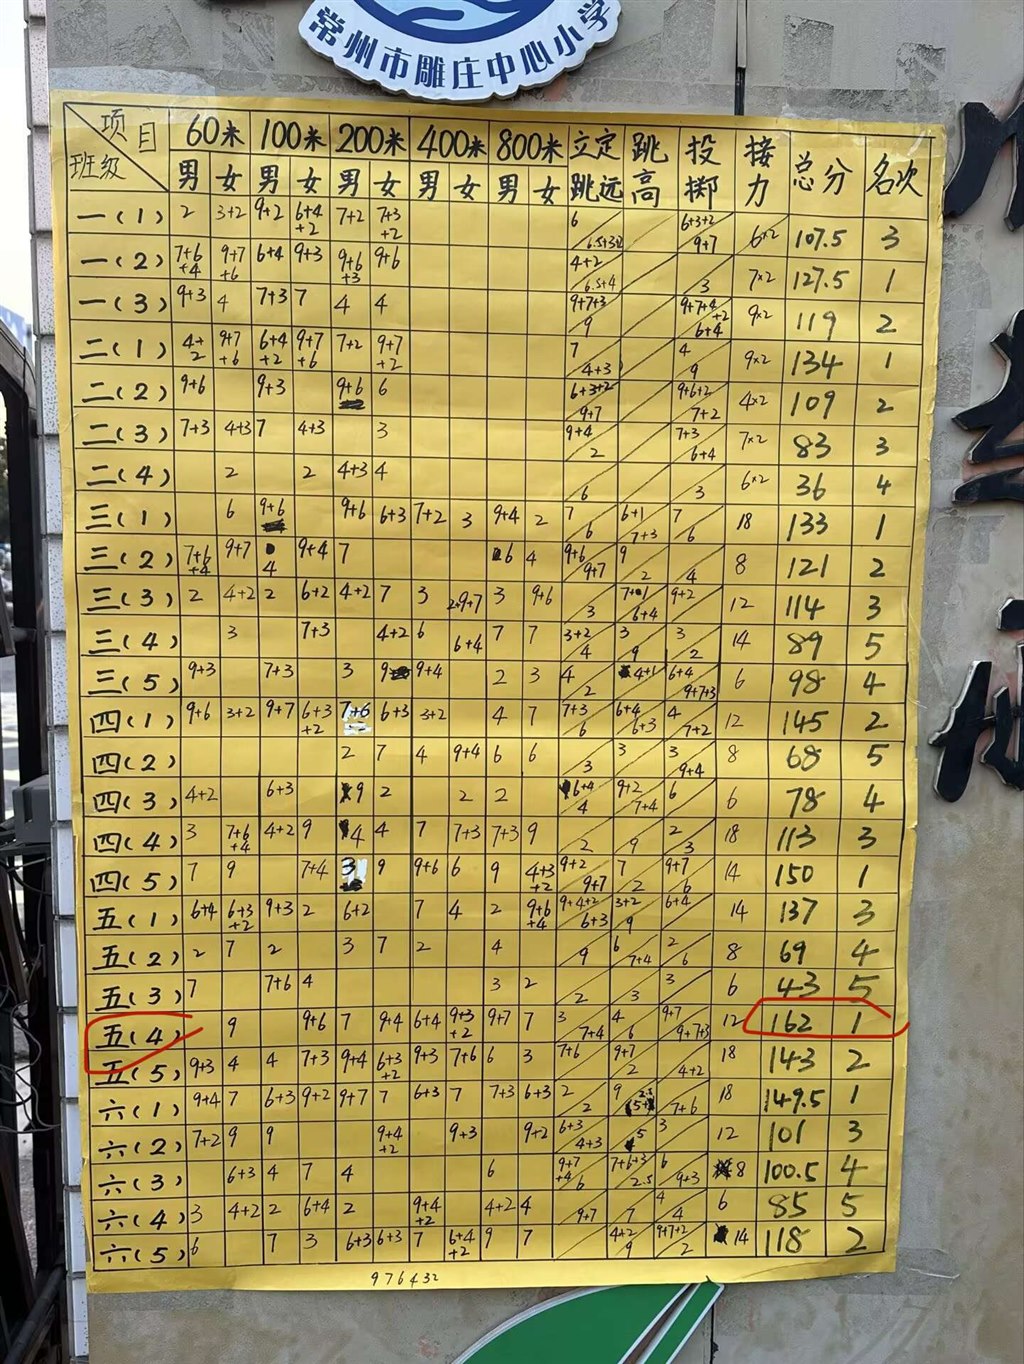 常州市雕庄中心小学
项目 60米 100米 200米 400米 800米 立定跳远 跳高 投掷 接力 总分 名次
班级 男 女 男 女 男 女 男 女 男 女
一(1) 2 3+2 9+2 6+4+2 7+2 7+3+2 6 6.5+3+2 6+3+2 9+7 6×2 107.5 3
一(2) 7+6+4 9+7+6 6+4 9+3 9+6+3 9+6 4+2 6.5+4 3 7×2 127.5 1
一(3) 9+3 4 7+3 7 4 4 9+7+3 9 9+7+4+2 6+4 9×2 119 2
二(1) 4+2 9+7+6 6+4+2 9+7+6 7+2 9+7+2 7 4+3 4 9 9×2 134 1
二(2) 9+6 9+3 9+6 6 6+3+2 9+7 9+6+2 7+2 4×2 109 2
二(3) 7+3 4+3 7 4+3 3 9+4 2 7+3 6+4 7×2 83 3
二(4) 2 2 4+3 4 6 3 6×2 36 4
三(1) 6 9+6 9+6 6+3 7+2 3 9+4 2 7 6 6+1 7+3 7 6 18 133 1
三(2) 7+6+4 9+7 4 9+4 7 6 4 9+6 9+7 9 2 4 8 121 2
三(3) 2 4+2 2 6+2 4+2 7 3 2+9+7 3 9+6 3 7+1 6+4 9+2 12 114 3
三(4) 3 7+3 4+2 6 6+4 7 7 3+2 4 3 9 3 2 14 89 5
三(5) 9+3 7+3 3 9 9+4 2 3 4 2 4+1 6+4 9+7+3 6 98 4
四(1) 9+6 3+2 9+7 6+3+2 7+6 6+3 3+2 4 7 7+3 6 6+4 6+3 4 7+2 12 145 2
四(2) 2 7 4 9+4 6 6 3 3 3 9+4 8 68 5
四(3) 4+2 6+3 9 2 2 2 6+4 4 9+2 7+4 6 6 78 4
四(4) 3 7+6+4 4+2 9 4 4 7 7+3 7+3 9 2 9 2 3 18 113 3
四(5) 7 9 7+4 3 9 9+6 6 9 4+3+2 9+2 9+7 7 2 9+7 6 14 150 1
五(1) 6+4 6+3+2 9+3 2 6+2 7 4 2 9+6+4 9+4+2 6+3 3+2 9 6+4 14 137 3
五(2) 2 7 2 3 7 2 4 9 6 7+4 2 6 8 69 4
五(3) 7 7+6 4 3 2 2 3 3 6 43 5
五(4) 9 9+6 7 9+4 6+4 9+3+2 9+7 7 3 7+4 4 6 9+7 9+7+3 12 162 1
五(5) 9+3 4 4 7+3 9+4 6+3+2 9+3 7+6 6 3 7+6 9+7 2 4+2 18 143 2
六(1) 9+4 7 6+3 9+2 9+7 7 6+3 7 7+3 6+3 2 2 9 7+6 18 149.5 1
六(2) 7+2 9 9 9+4+2 9+3 9+2 6+3 4+3 5 3 12 101 3
六(3) 6+3 4 7 4 6 9+7+4 6 7+6+3 2.5 6 9+3 8 100.5 4
六(4) 3 4+2 2 6+4 2 9+4+2 4+2 4 9+7 7 4 4 6 85 5
六(5) 6 7 3 6+3 6+3 7 6+4+2 9 7 4+2 9 9+7+2 2 14 118 2
976432